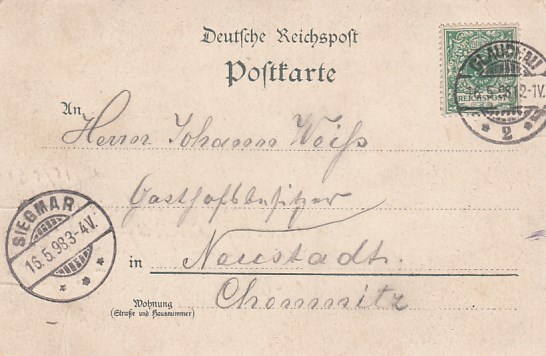 Deutsche Reichspost
Postkarte
GLAUCHAU
16.5.98 12-1V.
* 2 *
REICHSPOST
An
Herrn Johann Weiß
Gasthofsbesitzer
SIEGMAR
16.5.98 3-4V.
* * *
in Neustadt
Chemnitz
Wohnung
(Straße und Hausnummer)